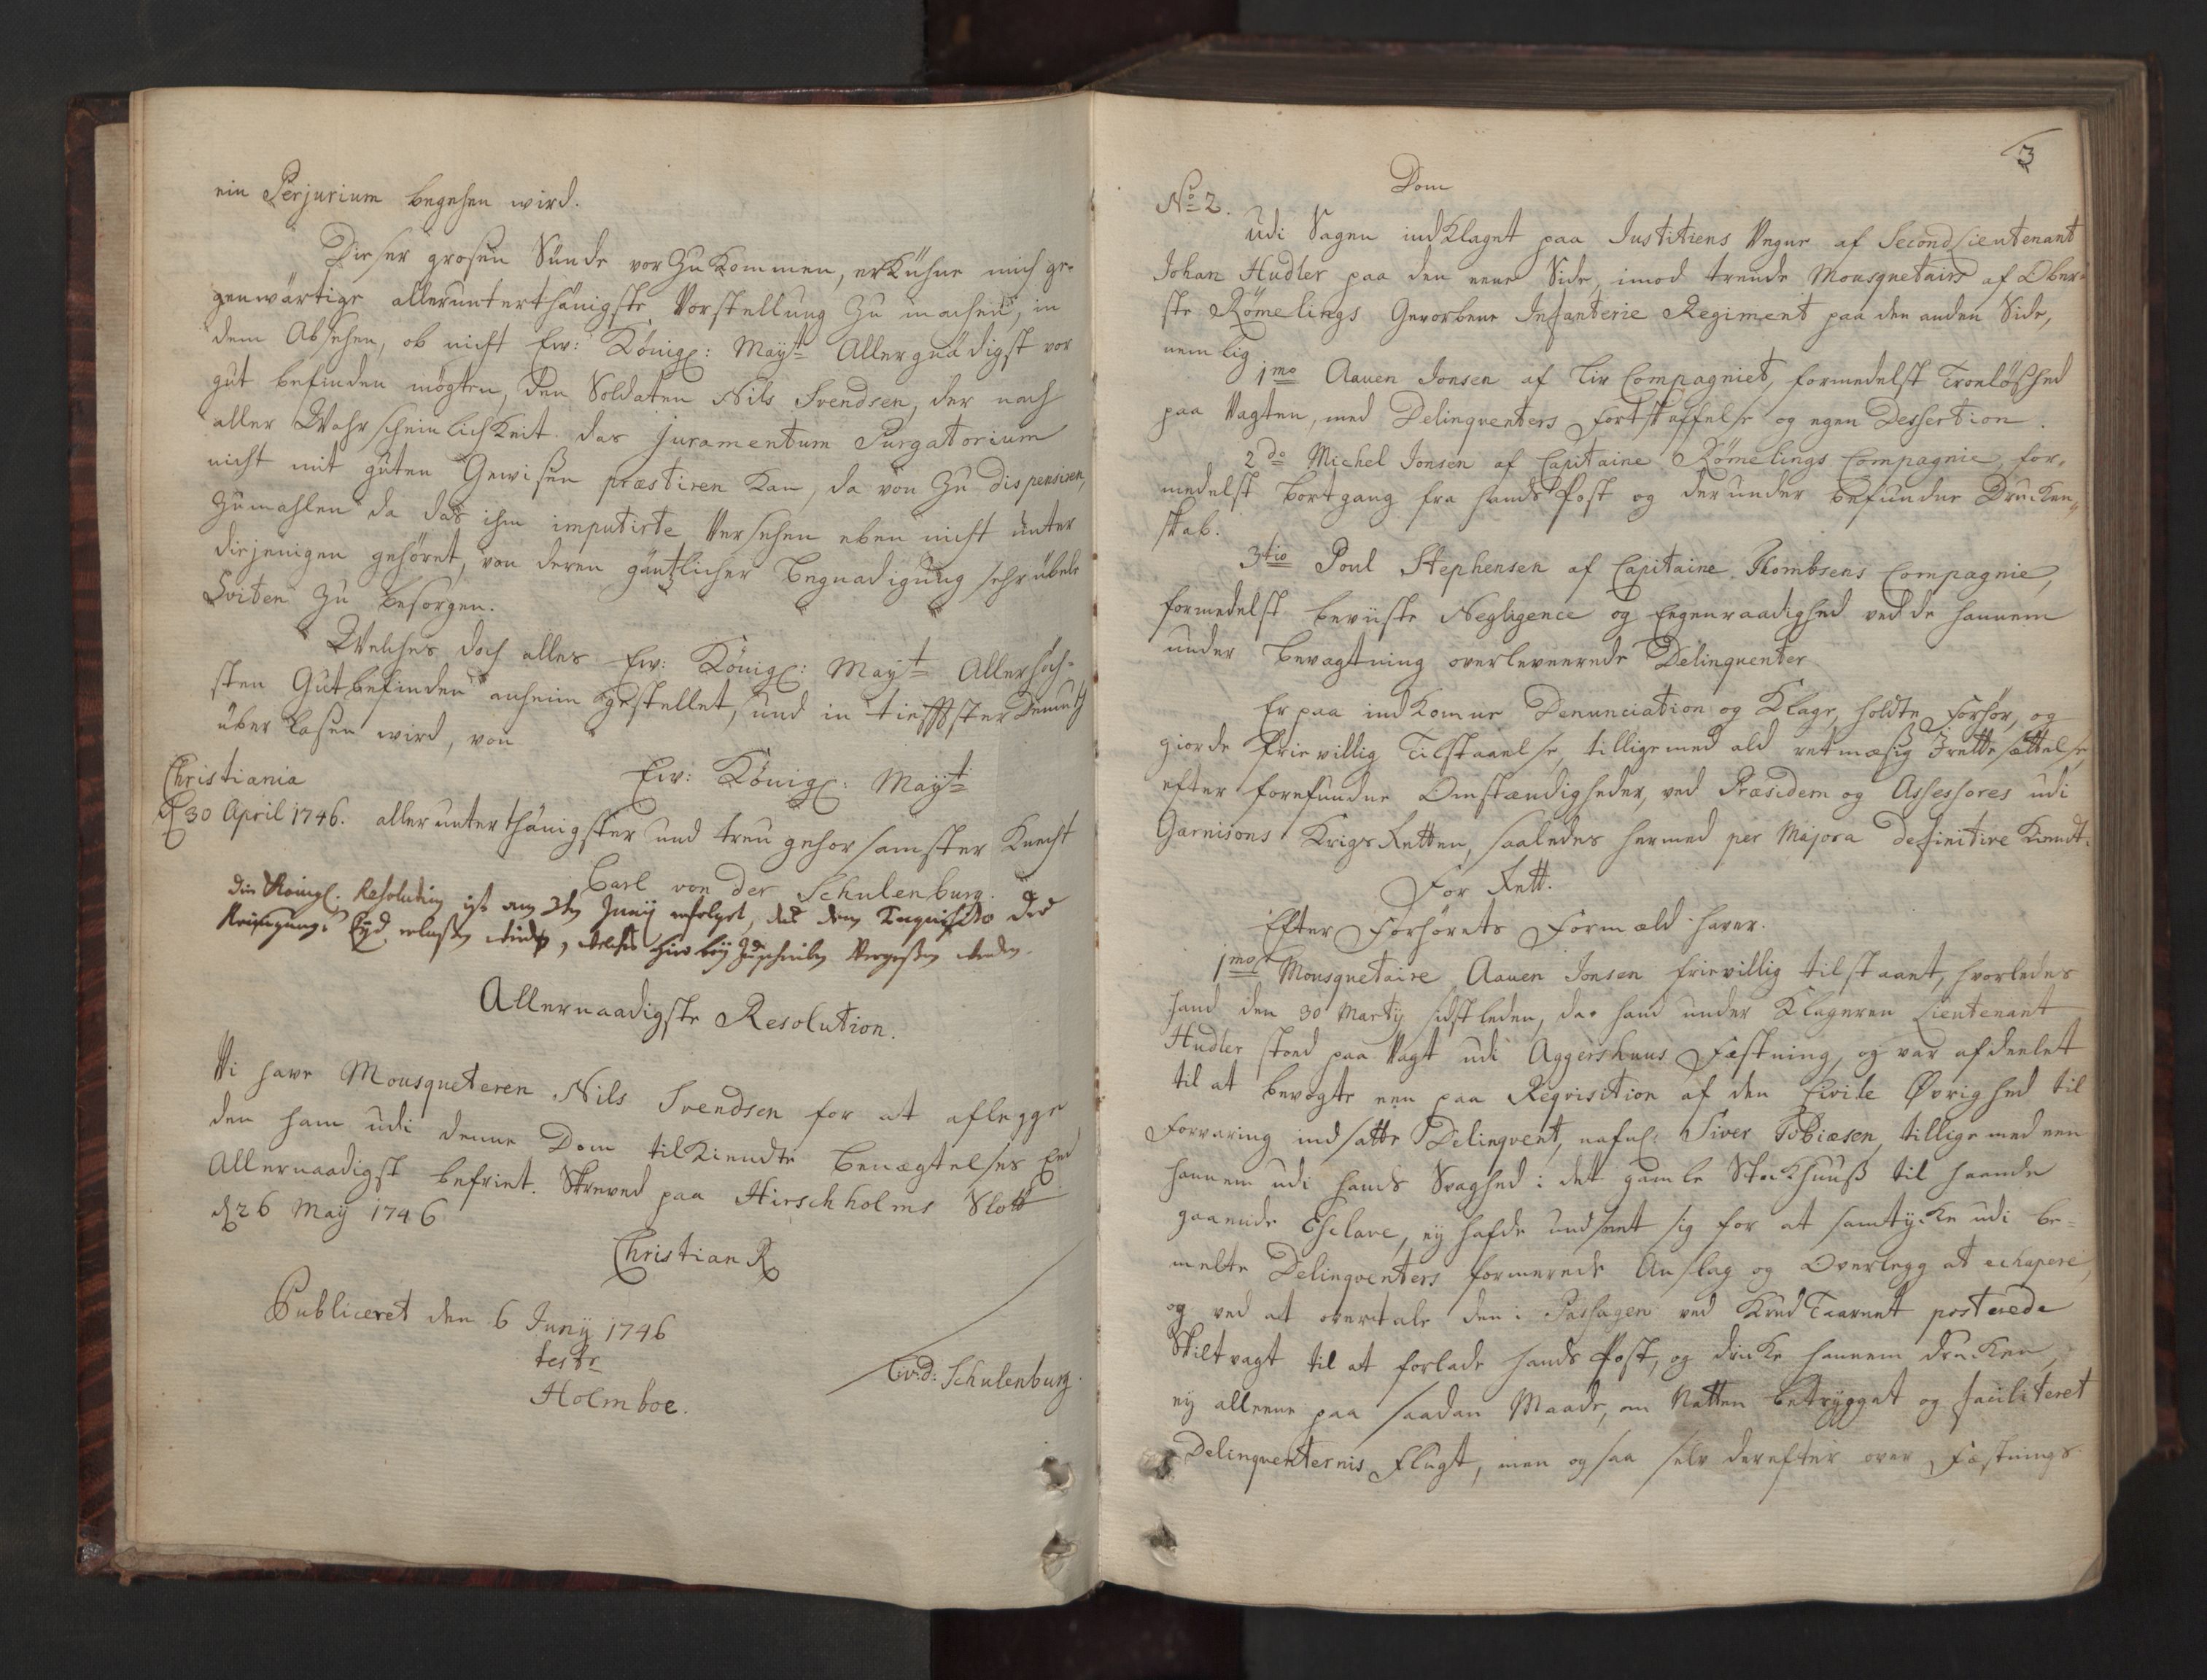 ein Perjurium begehen wird.
Dieser grosen Sünde vor zu kommen, erkühne mich ge-
genwärtige allerunterthänigste Vorstellung zu machen, in
dem Absehen, ob nicht Ew: Königl: Mayt Allergnädigst vor
gut befinden mögten, den Soldaten Nils Svendsen, der nach
aller Wahrscheinlichkeit das juramentum Purgatorium
nicht mit guten Gewißen præstiren kan, da von zu dispensiren,
zumahlen da das ihm imputirte Versehen eben nicht unter
diejenigen gehöret, von deren gäntzlicher Begnadigung sehr üble
Sviten zu besorgen.
Welches doch alles Ew: Königl: Mayt Allerhöch-
sten Gutbefinden anheim gestellet, und in tieffster Demuth
überlaßen wird, von
Christiania
d 30 April 1746.
Ew: Königl: Mayt
allerunterthänigster und treu gehorsamster Knecht
Carl von der Schulenburg.
die Königl. Resolution ist am 3ten Junij erfolget, daß dem Inquisito der
Reinigungs Eyd erlaßen wird, welches hier bey zu schreiben vergeßen worden.
Allernaadigste Resolution.
Vi have Mousqueteren Nils Svendsen for at aflegge
den ham udi denne Dom tilkiendte Benægtelses Eed
Allernaadigst befriet. Skreved paa Hirschholms Slott
d 26 Maij 1746
Christian R
Publiceret den 6 Junij 1746
teste
Holmboe.
C:v:d: Schulenburg.
3
Dom
No 2.
Udi Sagen indklaget paa Justitiens Vegne af Second Lieutenant
Johan Hudler paa den eene Side, imod trende Mousquetairs af Ober-
ste Römelings Gevorbene Infanterie Regiment paa den anden Side,
nemlig
1mo Aaven Jonsen af Liv Compagniet, formedelst Troeløshed
paa Vagten, med Delinqventers Fortskaffelse og egen Dessertion.
2do Michel Jonsen af Capitaine Römelings Compagnie, for-
medelst Bortgang fra hands Post og derunder befundne Drucken-
skab.
3tio Poul Stephensen af Capitaine Rombsens Compagnie,
formedelst beviiste Negligence og Eegenraadighed ved de hannem
under bevagtning overleverede Delinqventer
Er paa indkomne Denunciation og Klage, holdte Forhør, og
giorde frievillig Tilstaaelse, tilligemed ald retmæsig Irettesættelse,
efter forefundne Omstændigheder, ved Præsidem og Assessores udi
Garnisons Krigs Retten, saaledes hermed per Majora definitive kiendt
For Rett.
Efter Forhørets Formæld haver
1mo Mousquetaire Aaven Jonsen frievillig tilstaaet, hvorledes
hand den 30 Martij sidstleden, da hand under Klageren Lieutenant
Hudler stoed paa Vagt udi Aggershuus Fæstning, og var afdeelet
til at bevogte een paa Reqvisition af den Civile Øvrighed til
Forvaring indsatte Delinqvent, nafnl: Siver Tobiæsen, tilligemed een
hannem udi hands Svaghed i det gamle Stockhuuß til haande
gaaende Esclave, ey hafde undseet sig for at samtycke udi be-
melte Delinqventers formerede Anslag og Overlegg at echapere,
og ved at overtale den i Passagen ved Krud Taarnet posterede
Skiltvagt til at forlade hands Post, og dricke hannem drucken,
ey alleene paa saadan Maade, om Natten betrygget og faciliteret
Delinqventernis Flugt, men og saa selv derefter over Fæstnings